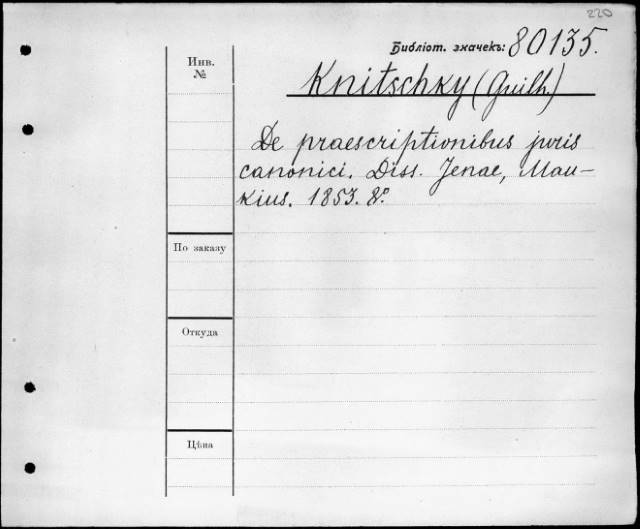 220
Библіот. значекъ: 80135.
Инв.
№
Knitschky (Guilh.)
De praescriptionibus juris
canonici. Diss. Jenae, Mau-
kius. 1853. 8º.
По заказу
Откуда
Цѣна